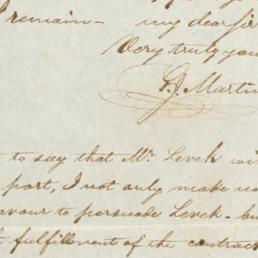 I remain — my dear Sir
Very truly you
G. J. Martin
to say that Mr. Levek wi
part, I not only make no
avour to persuade Levek - bu
fulfillment of the contrac